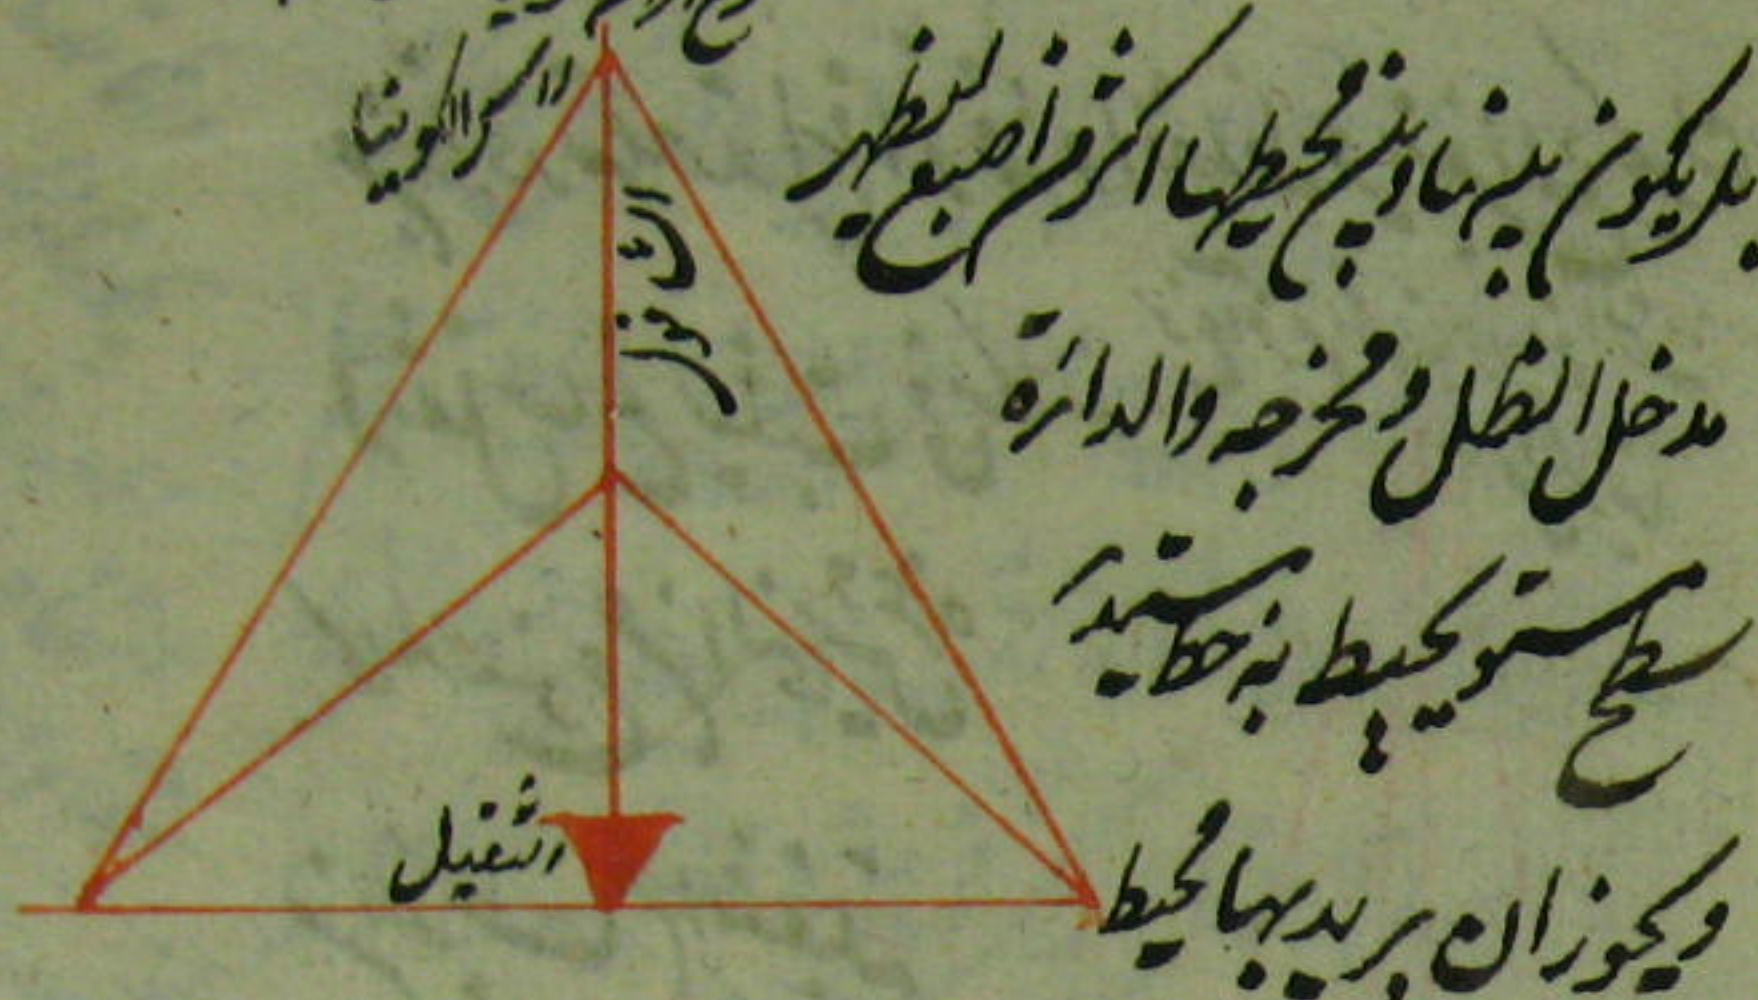 بل يكون بينها وبين محيطها اكثر من اصبع ليظهر
مدخل الظل ومخرجه والدائرة
سطح مستو يحيط به خط مستدير
ويجوز ان يريد بها محيط
راس الكونيا
الثقيل